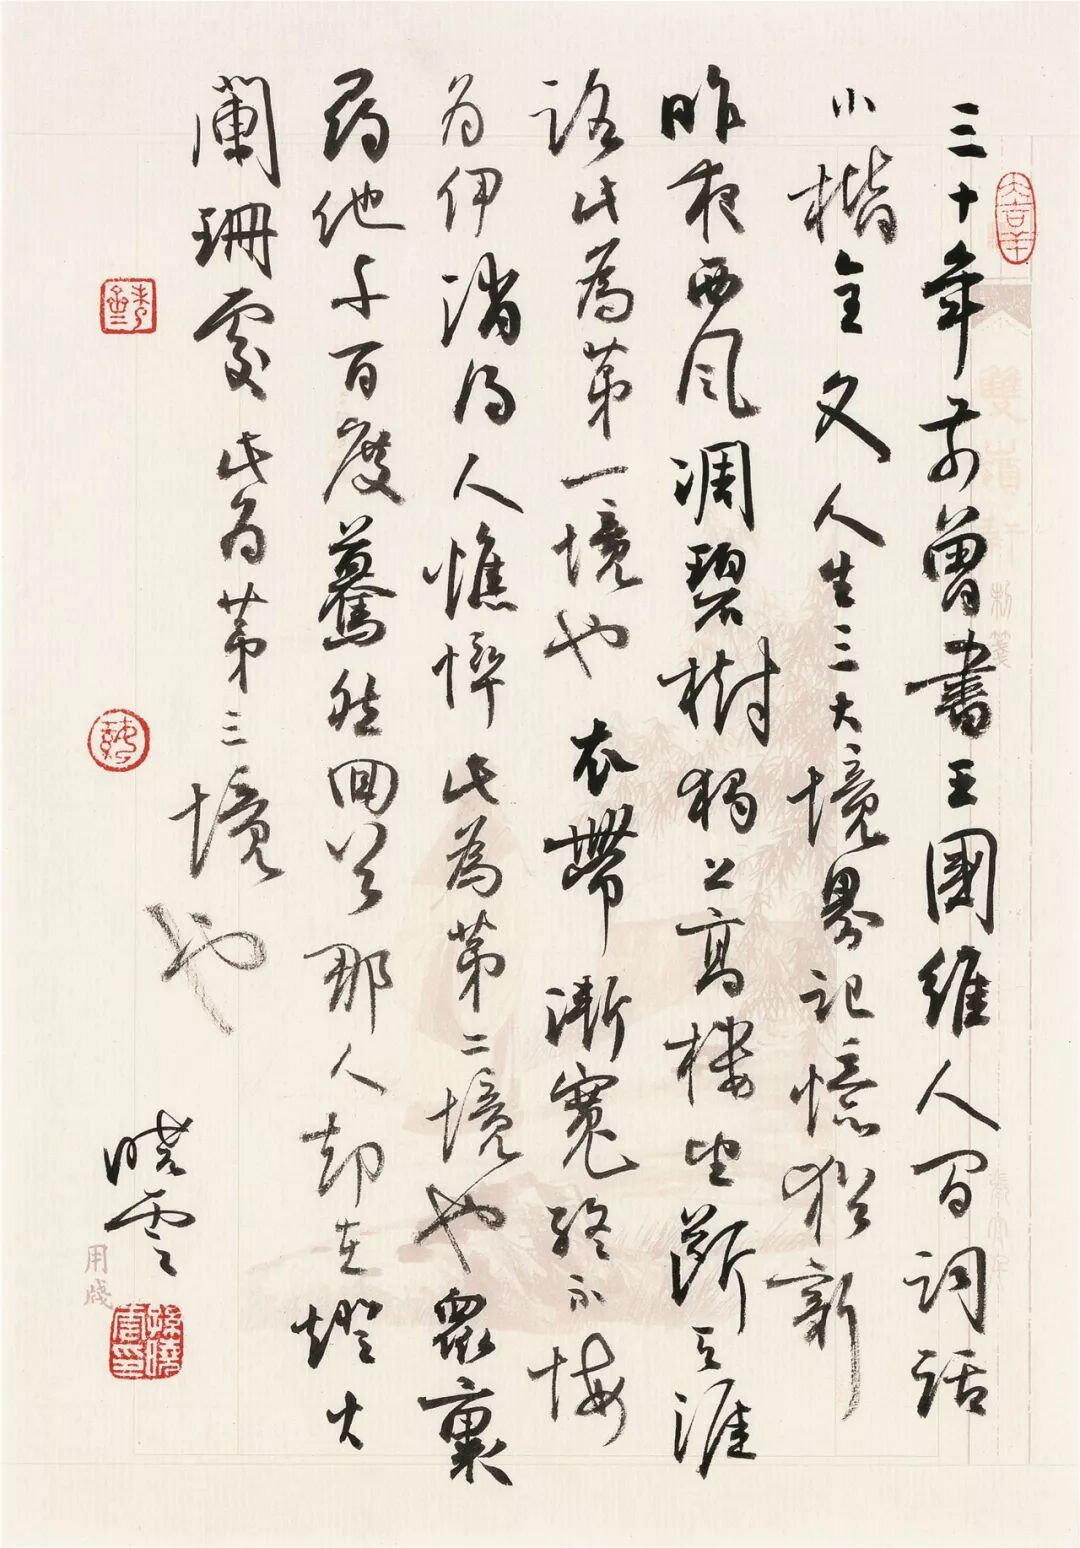 三十年前曾書王國維人间词话
小楷全文人生三大境界记憶猶新
昨夜西风凋碧樹獨上高楼望斷天涯
路此為第一境也衣帶漸寬終不悔
为伊消得人憔悴此為第二境也眾裏
尋他千百度驀然回首那人却在燈火
闌珊處此为第三境也
晓雲
用牋
雙
制箋